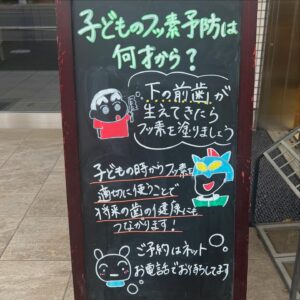 子どものフッ素予防は
何才から?
下の前歯が
生えてきたら
フッ素を塗りましょう
子どもの時からフッ素を
適切に使うことで
将来の歯の健康にも
つながります!
ご予約はネット
お電話でお待ちしてます